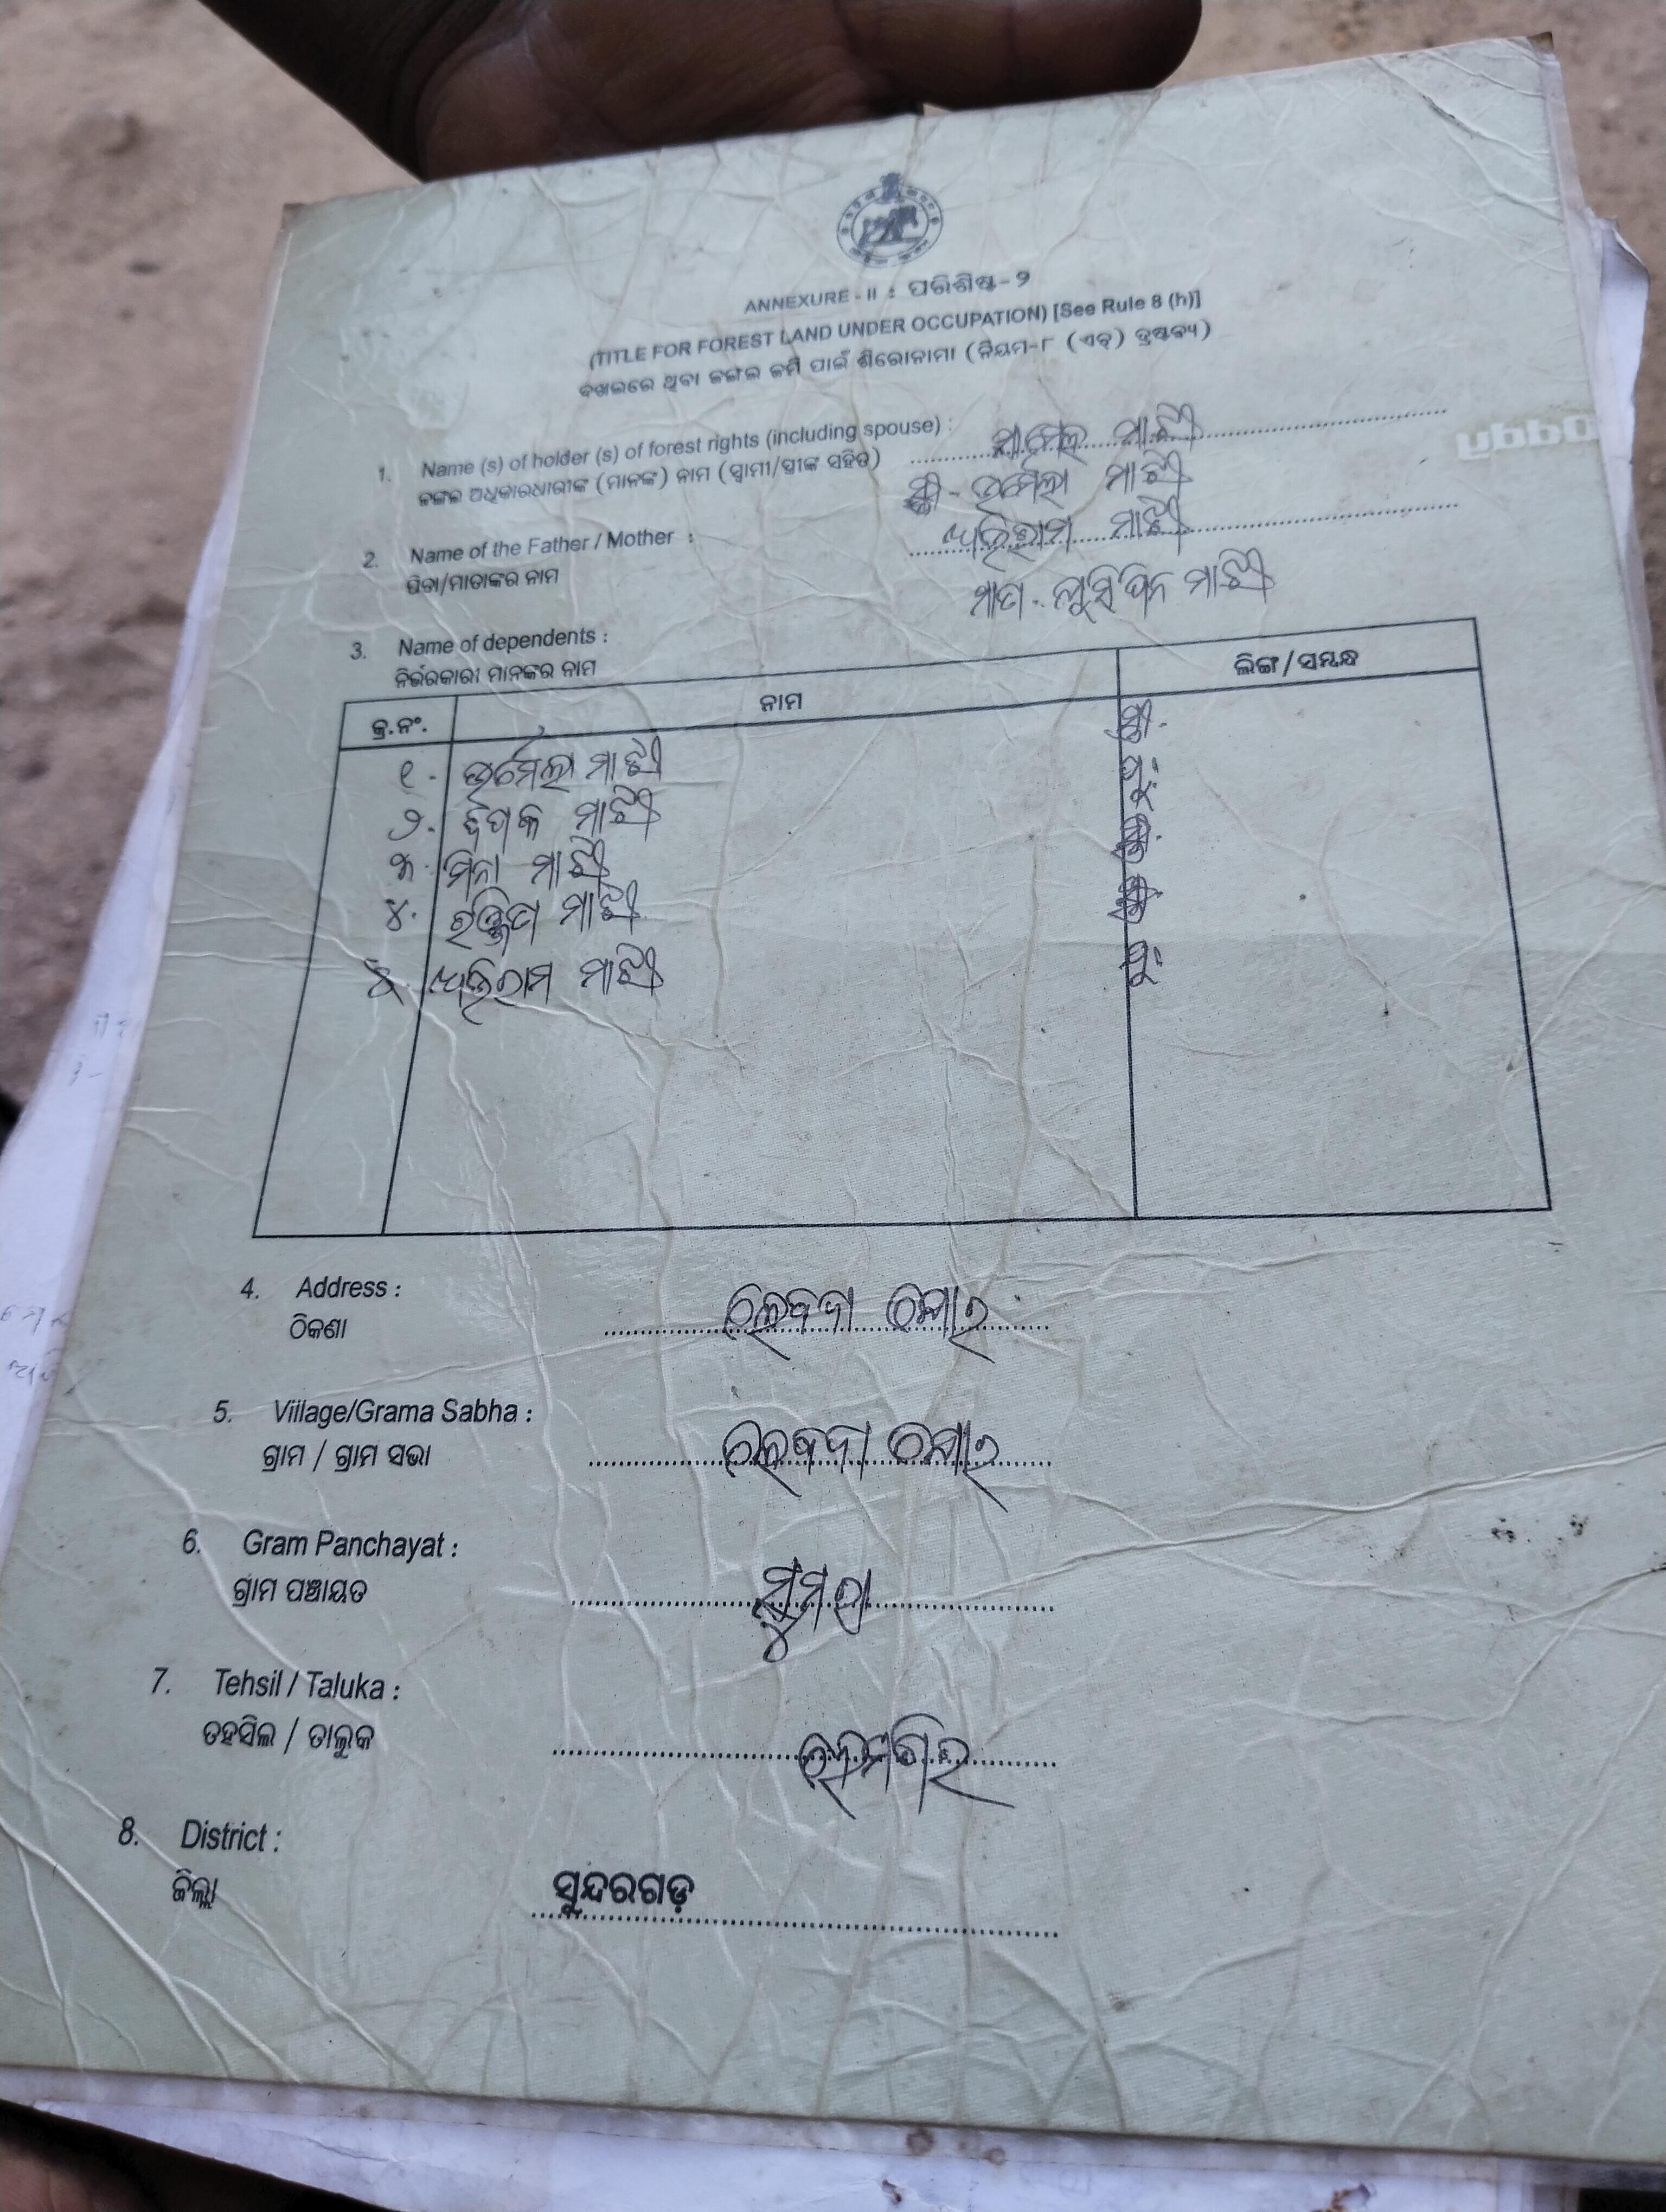 ANNEXURE - II : ପରିଶିଷ୍ଟ-୨
(TITLE FOR FOREST LAND UNDER OCCUPATION) [See Rule 8 (h)]
ଦଖଲରେ ଥିବା ଜଙ୍ଗଲ ଜମି ପାଇଁ ଶିରୋନାମା (ନିୟମ-୮ (ଏଚ୍) ଦ୍ରଷ୍ଟବ୍ୟ)
1. Name (s) of holder (s) of forest rights (including spouse) : ମାଝୀ
ଜଙ୍ଗଲ ଅଧିକାରଧାରୀଙ୍କ (ମାନଙ୍କ) ନାମ (ସ୍ୱାମୀ/ସ୍ତ୍ରୀଙ୍କ ସହିତ) ସ୍ତ୍ରୀ - ଉର୍ମିଲା ମାଝୀ
2. Name of the Father / Mother : ଅଭିରାମ ମାଝୀ
ପିତା/ମାତାଙ୍କର ନାମ ମାତା - ମାଝୀ
3. Name of dependents :
ନିର୍ଭରକାରୀ ମାନଙ୍କର ନାମ
କ୍ର.ନଂ. ନାମ ଲିଙ୍ଗ / ସମ୍ବନ୍ଧ
୧. ଉର୍ମିଲା ମାଝୀ ସ୍ତ୍ରୀ.
୨. ଦିପକ ମାଝୀ ପୁଂ
୩. ମିନା ମାଝୀ ସ୍ତ୍ରୀ.
୪. ରଞ୍ଜିତା ମାଝୀ ସ୍ତ୍ରୀ
୫. ଅଭିରାମ ମାଝୀ ପୁଂ
4. Address :
ଠିକଣା
5. Viilage/Grama Sabha :
ଗ୍ରାମ / ଗ୍ରାମ ସଭା
6. Gram Panchayat :
ଗ୍ରାମ ପଞ୍ଚାୟତ ସୁମରା
7. Tehsil / Taluka :
ତହସିଲ / ତାଲୁକ ହେମଗିର
8. District :
ଜିଲ୍ଲା ସୁନ୍ଦରଗଡ଼